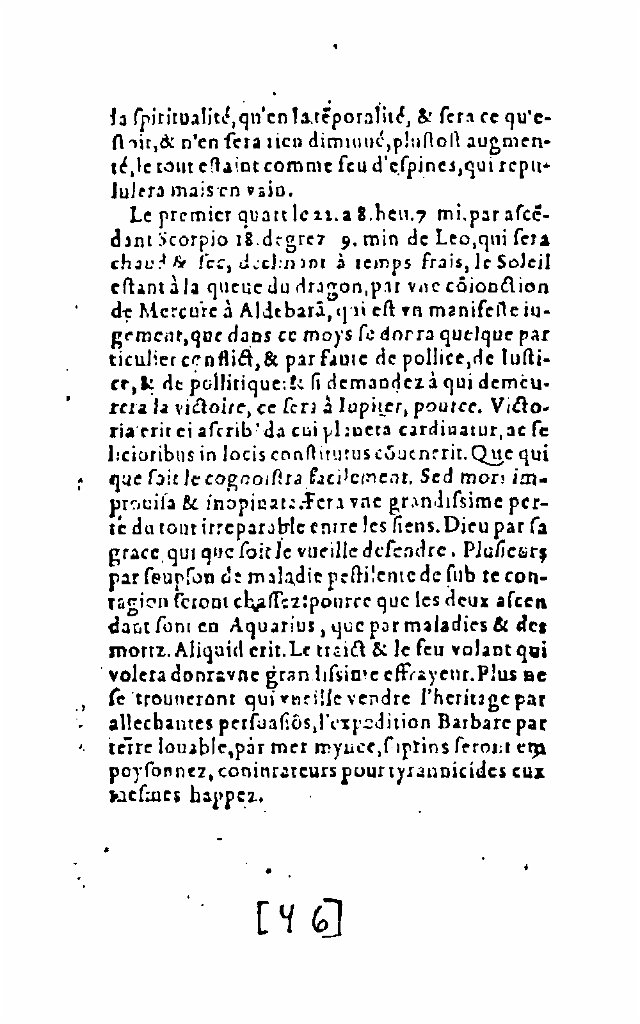 la ſpiritualité, qu'en la tēporalité, & ſera ce qu'e-
ſtoit, & n'en ſera rien diminué, pluſtoſt augmen-
té, le tout eſtaint comme feu d'eſpines, qui repu-
lulera mais en vain.
Le premier quart le 21. a 8. heu. 7 mi. par aſcē-
dant Scorpio 18. degrez 9. min de Leo, qui ſera
chaud & ſec, declinant à temps frais, le Soleil
eſtant à la queue du dragon, par vne cōionction
de Mercure à Aldebarā, qui eſt vn manifeſte iu-
gement, que dans ce moys ſe donra quelque par
ticulier conflict, & par faute de pollice, de Iuſti-
ce, & de pollitique: & ſi demandez à qui demeu-
rera la victoire, ce ſera à Iupiter, pource. Victo-
ria erit ei aſcrib' da cui planeta cardinatur, ac fe
licioribus in locis conſtitutus cōuenerit. Que qui
que ſoit le cognoiſtra facilement. Sed mors im-
prouiſa & inopinata. Fera vne grandiſsime per-
te du tout irreparable entre les ſiens. Dieu par ſa
grace qui que ſoit le vueille defendre. Pluſieurs
par ſoupſon de maladie peſtilente de ſubite con-
tagion ſeront chaſſez: pource que les deux aſcen
dant ſont en Aquarius, que par maladies & des
mortz. Aliquid erit. Le traict & le feu volant qui
volera donra vne grandiſsime effrayeur. Plus ne
ſe trouueront qui vueille vendre l'heritage par
allechantes perſuaſiōs, l'expedition Barbare par
terre louable, par mer moyuce, ſeront em
poyſonnez, coniurateurs pour tyrannicides eux
meſmes happez.
[46]